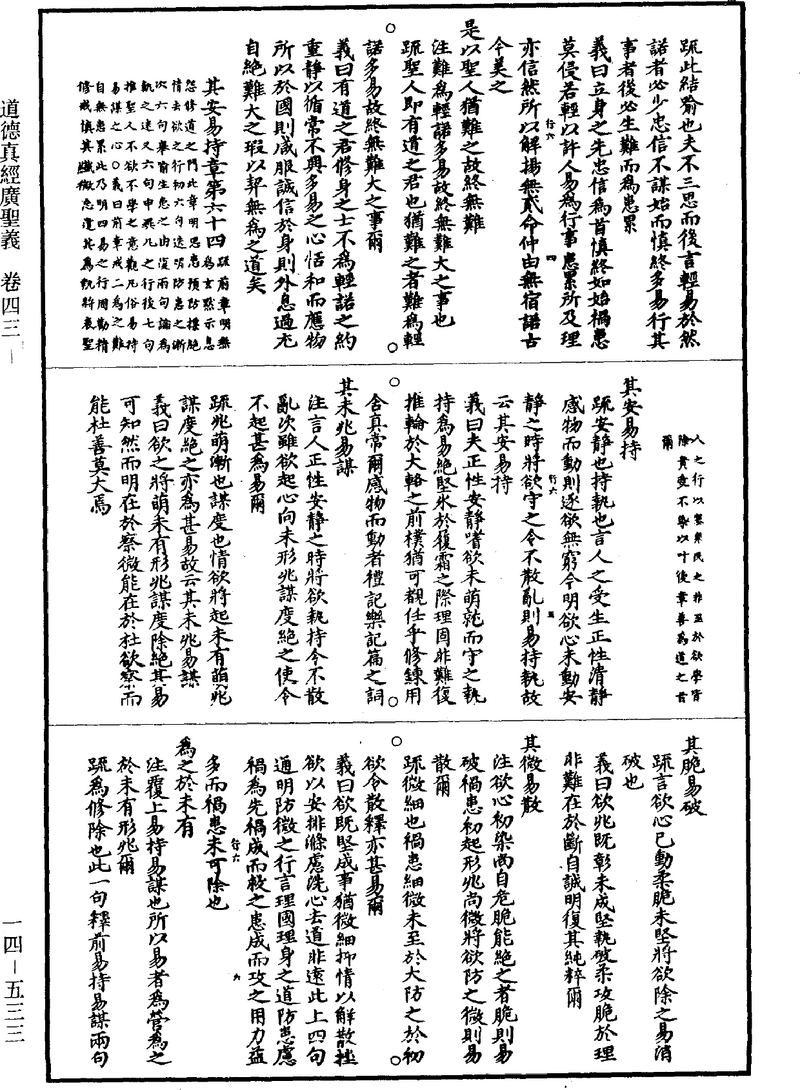 道德真經廣聖義 卷四三
一四—五三三
疏此結喻也夫不三思而後言輕易於然
諾者必少忠信不謀始而慎終多易行其
事者後必生難而為患累
義曰立身之先忠信為首慎終如始禍患
莫侵若輕以許人易為行事患累所及理
亦信然所以解揚無貳命仲由無宿諾古
今美之
是以聖人猶難之故終無難
注難為輕諾多易故終無難大之事也
疏聖人即有道之君也猶難之者難為輕
諾多易故終無難大之事爾
義曰有道之君修身之士不為輕諾之約
重靜以循常不興多易之心恬和而應物
所以於國則咸服誠信於身則外息過尤
自絕難大之瑕以契無為之道矣
其安易持章第六十四
疏前章明無
為玄默示息
怨修道之門此章明思患預防標絕
情去欲之行初六句遠明防患之漸
次六句舉喻生患之由復兩句論為
執之迷又六句申乘凡之行後七句
推聖人不欲不學之意觀凡俗易持
易謀之心〇義曰前章戒二為之難
自無患累此乃明四易之行周勤精
修戒慎其纖微忘遣其為執將表聖
人之行以鑒衆民之非至於欲學皆
除貴愛不舉以叶後章善為道之旨
爾
其安易持
疏安靜也持執也言人之受生正性清靜
感物而動則逐欲無窮今明欲心未動安
靜之時將欲守之令不散亂則易持執故
云其安易持
義曰夫正性安靜嗜欲未萌就而守之執
持為易絕堅氷於履霜之際理固非難復
推輪於大輅之前樸猶可覩任乎修鍊用
含真常爾感物而動者禮記樂記篇之詞
其未兆易謀
注言人正性安靜之時將欲執持令不散
亂次雖欲起心向未形兆謀度絕之使令
不起甚為易爾
疏兆萌漸也謀度也情欲將起未有萌兆
謀度絕之亦為甚易故云其未兆易謀
義曰欲之將萌未有形兆謀度除絕其易
可知然而明在於察微能在於杜欲察而
能杜善莫大焉
其脆易破
疏言欲心已動柔脆未堅將欲除之易消
破也
義曰欲兆既彰未成堅執破柔攻脆於理
非難在於斷自誠明復其純粹爾
其微易散
注欲心初染尚自危脆能絕之者脆則易
破禍患初起形兆尚微將欲防之微則易
散爾
疏微細也禍患細微未至於大防之於初
欲令散釋亦甚易爾
義曰欲既堅成事猶微細抑情以解散挫
欲以安排滌慮洗心去道非遠此上四句
通明防微之行言理國理身之道防患慮
禍為先禍成而救之患成而攻之用力益
多而禍患未可除也
為之於未有
注覆上易持易謀也所以易者為營為之
於未有形兆爾
疏為修除也此一句釋前易持易謀兩句